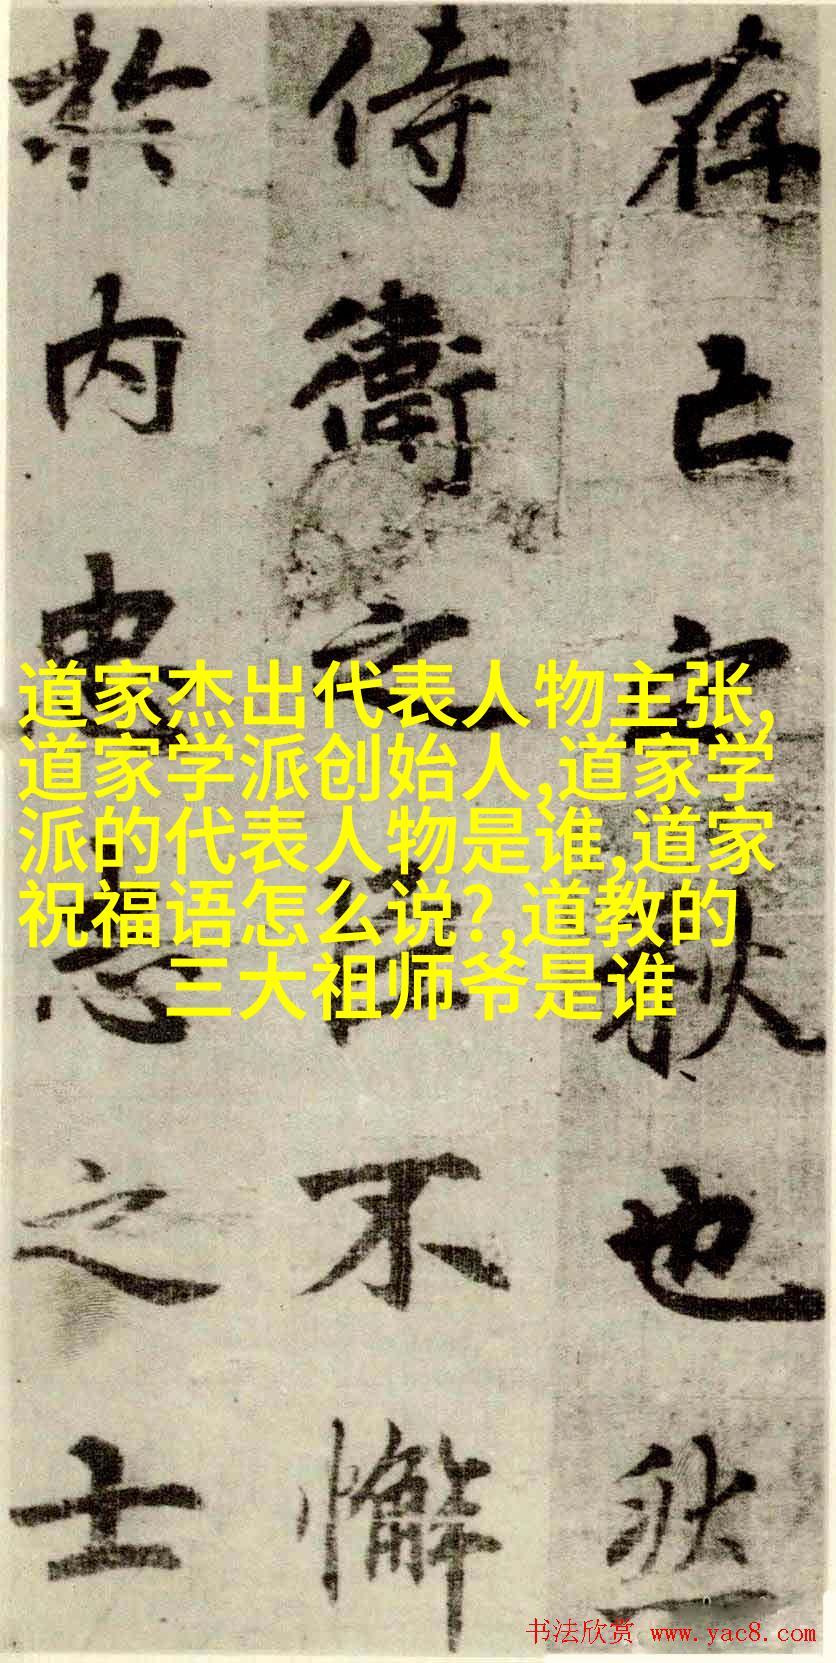 存亡之秋也然
侍衛之臣不懈
於內忠志之士
道家杰出代表人物主张,
道家学派创始人,道家学
派的代表人物是谁,道家
祝福语怎么说?,道教的
三大祖师爷是谁
书法欣赏 www.yac8.com